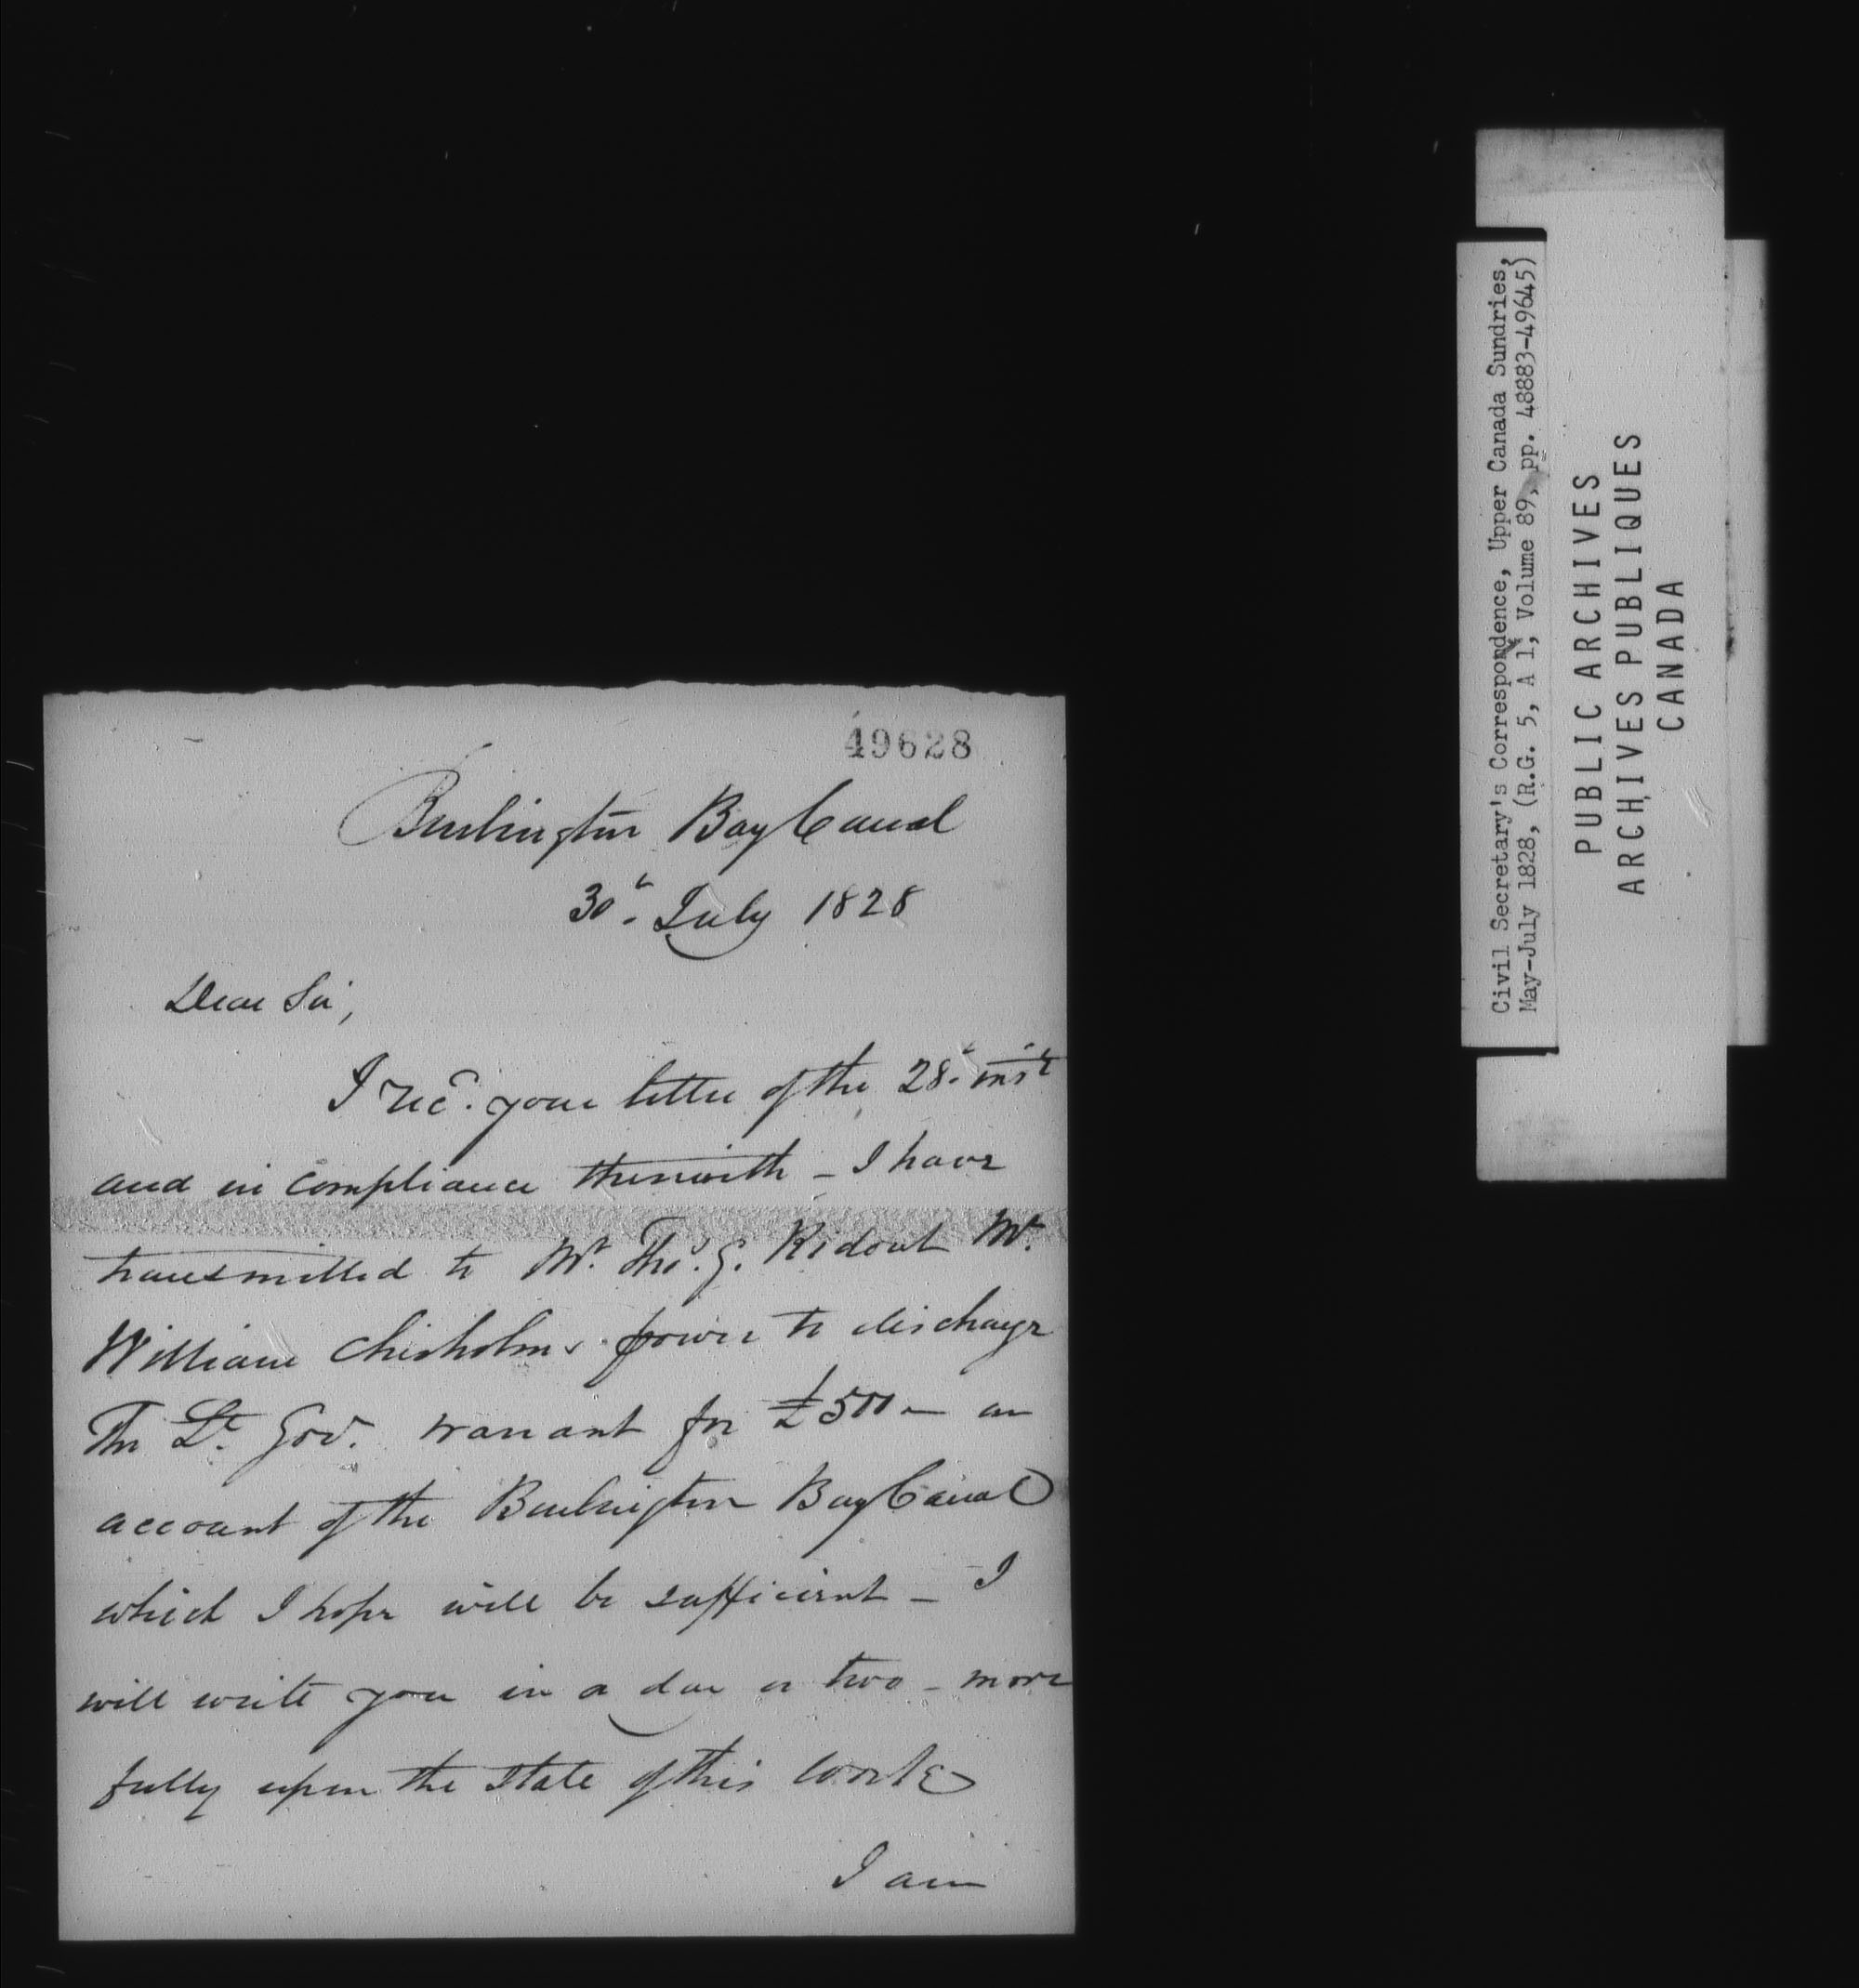 49628
Burlington Bay Canal
30t. July 1828
Dear Sir,
I recd. your letter of the 28t. inst
and in compliance therewith - I have
transmitted to Mr. Thos. G. Ridout Mr.
William Chisholms power to discharge
The Lt. Gov. warrant for £500 — on
account of the Burlington Bay Canal
which I hope will be sufficient - I
will write you in a day or two - more
fully upon the state of this work
I am
Civil Secretary's Correspondence, Upper Canada Sundries,
May-July 1828, (R.G. 5, A 1, Volume 89, pp. 48883-49645)
PUBLIC ARCHIVES
ARCHIVES PUBLIQUES
CANADA